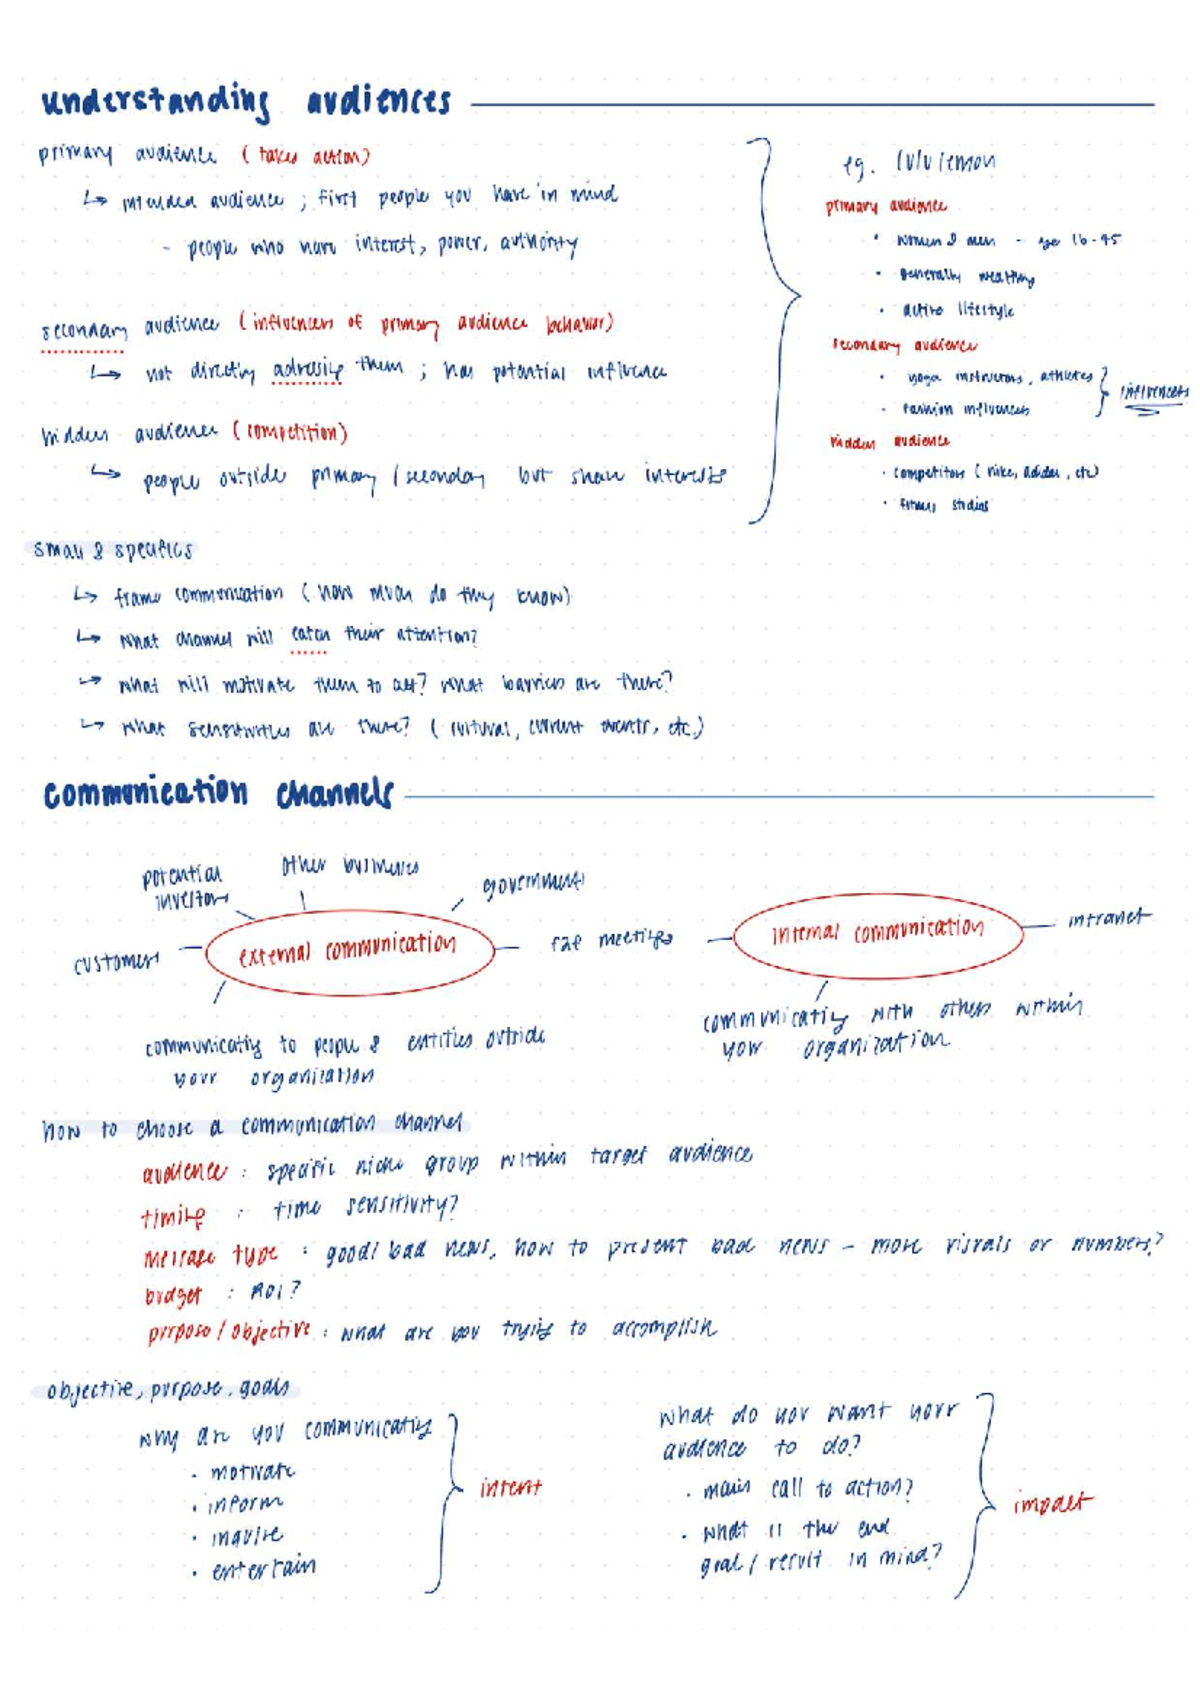 understanding audiences
primary audience (takes action)
↳ intended audience ; first people you have in mind
- people who have interest, power, authority
secondary audience (influencers of primary audience behavior)
↳ not directly adressing them ; has potential influence
hidden audience (competition)
↳ people outside primary / secondary but share interests
eg. lululemon
primary audience
• women & men - age 16-45
• generally wealthy
• active lifestyle
secondary audience
• yoga instructors, athletes
• fashion influences
influencers
hidden audience
• competitors (nike, adidas, etc)
• fitness studios
small & specifics
↳ frame communication (how much do they know)
↳ what channel will catch their attention?
↳ what will motivate them to act? what barriers are there?
↳ what sensitivities are there? (cultural, current events, etc.)
communication channels
potential investors
other businesses
government
customers
external communication
f2f meetings
internal communication
intranet
communicating to people & entities outside
your organization
communicating with others within
your organization
how to choose a communication channel
audience : specific niche group within target audience
timing : time sensitivity?
message type : good/bad news, how to present bad news - more visuals or numbers?
budget : ROI?
purpose / objective : what are you trying to accomplish
objective, purpose, goals
why are you communicating
• motivate
• inform
• inquire
• entertain
intent
what do you want your
audience to do?
• main call to action?
• what is the end
goal / result in mind?
impact